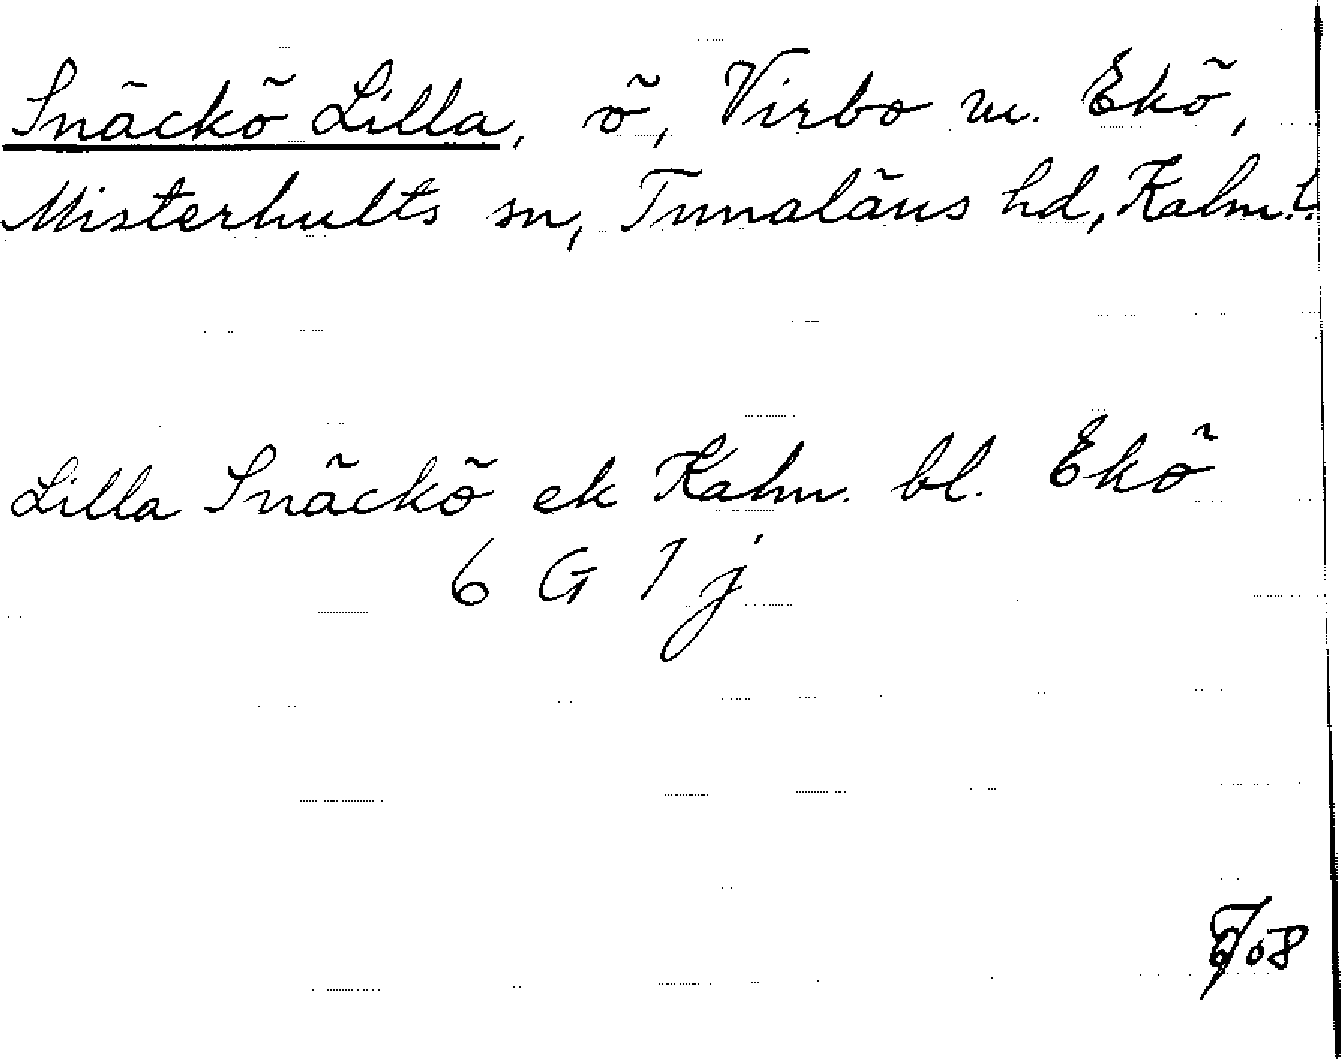 Snäckö Lilla, ö, Virbo m. Ekö,
Misterhults sn, Tunaläns hd, Kalm. l.
Lilla Snäckö ek Kalm. bl. Ekö
6 G 1 j